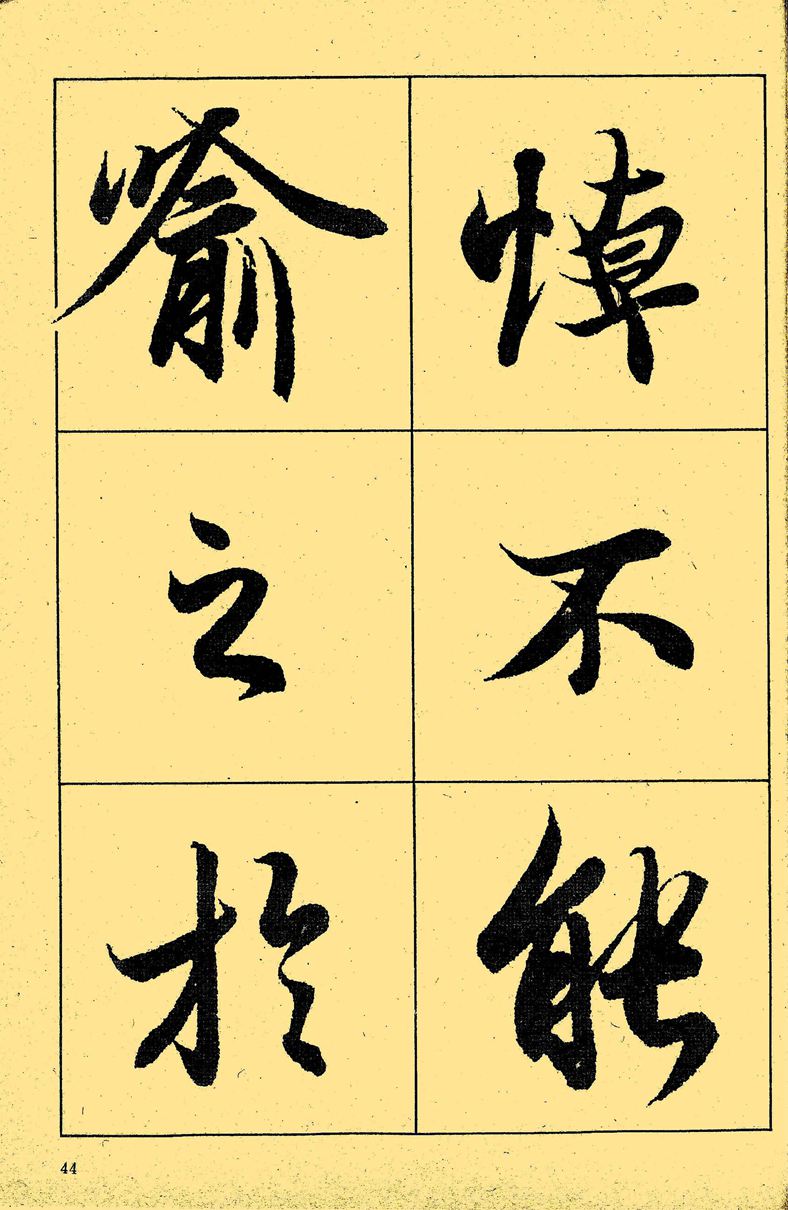 悼不能
喻之於
44